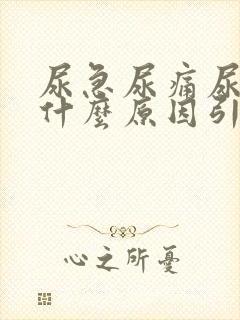 尿急尿痛尿
什麼原因引
心之所憂